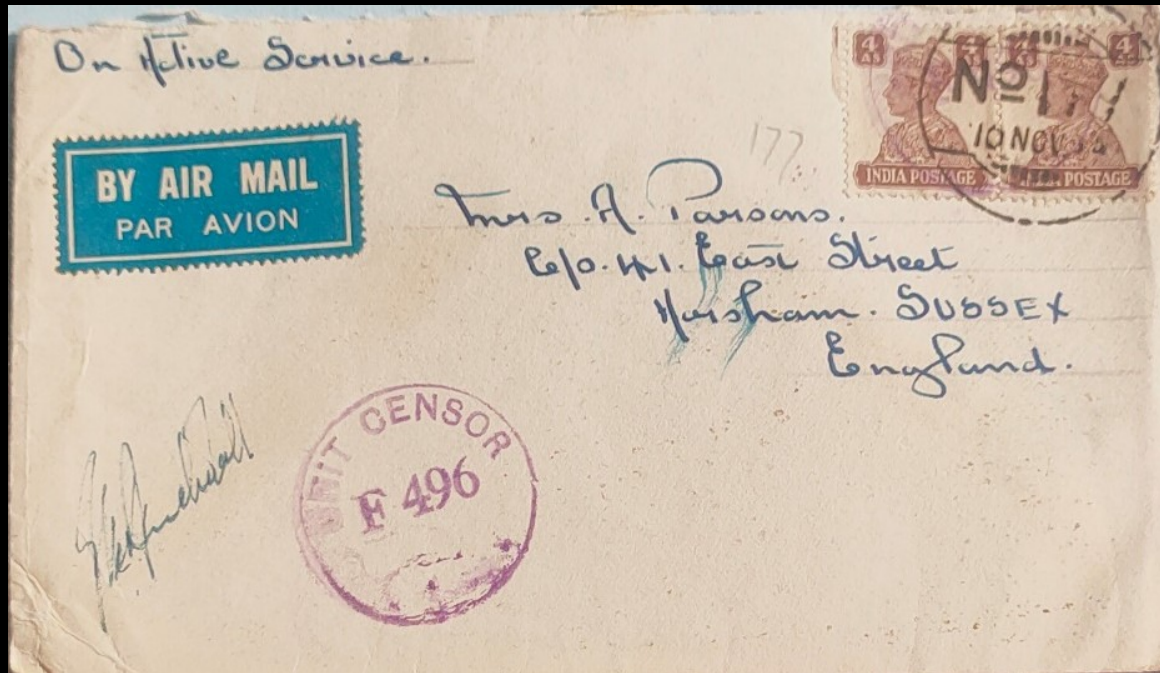 On Active Service.
BY AIR MAIL
PAR AVION
4 AS 4 AS
INDIA POSTAGE
4 AS 4 AS
INDIA POSTAGE
No
10 NOV
177
Mrs. A. Parsons.
C/o. 41. East Street
Horsham. SUSSEX
England.
UNIT CENSOR
F 496